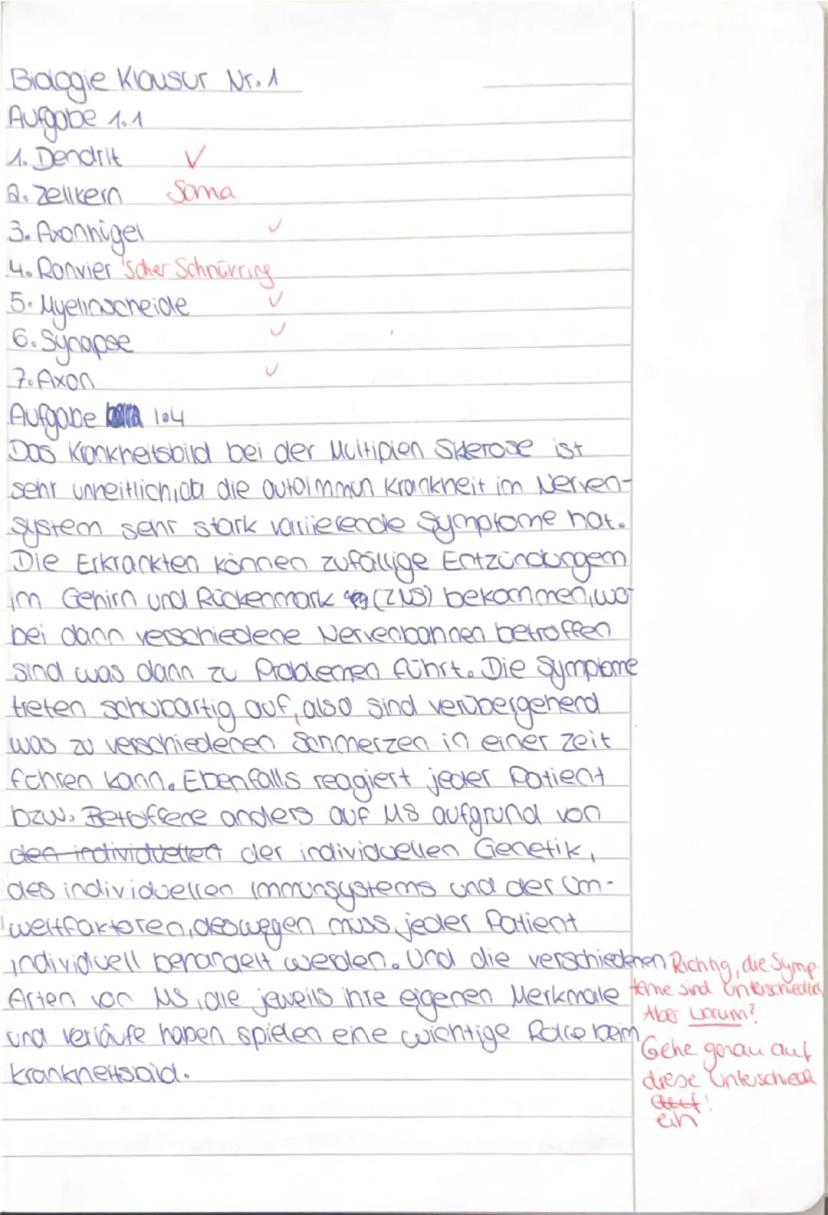 Biologie Klausur Nr. 1
Aufgabe 1.1
1. Dendrit ✓
2. Zellkern Soma
3. Axonhügel ✓
4. Ranvier 'scher Schnürring
5. Myelinscheide ✓
6. Synapse ✓
7. Axon ✓
Aufgabe 1.4
Das Krankheitsbild bei der Multiplen Sklerose ist
sehr unheitlich, da die autoimmun Krankheit im Nerven-
system sehr stark variierende Symptome hat.
Die Erkrankten können zufällige Entzündungen
im Gehirn und Rückenmark (ZNS) bekommen, wo
bei dann verschiedene Nervenbahnen betroffen
sind was dann zu Problemen führt. Die Symptome
treten schubartig auf, also sind verübergehend
was zu verschiedenen Schmerzen in einer Zeit
führen kann. Ebenfalls reagiert jeder Patient
bzw. Betroffene anders auf MS aufgrund von
den individuellen der individuellen Genetik,
des individuellen Immunsystems und der Um-
weltfaktoren, deswegen muss jeder Patient
individuell behandelt werden. Und die verschiedenen
Arten von MS, die jeweils ihre eigenen Merkmale
und verläufe haben spielen eine wichtige Rolle beim
Krankheitsbild.
Richtig, die Symp-
tome sind unterschiedlich
Aber warum?
Gehe genau auf
diese Unterschiede
auf!
ein